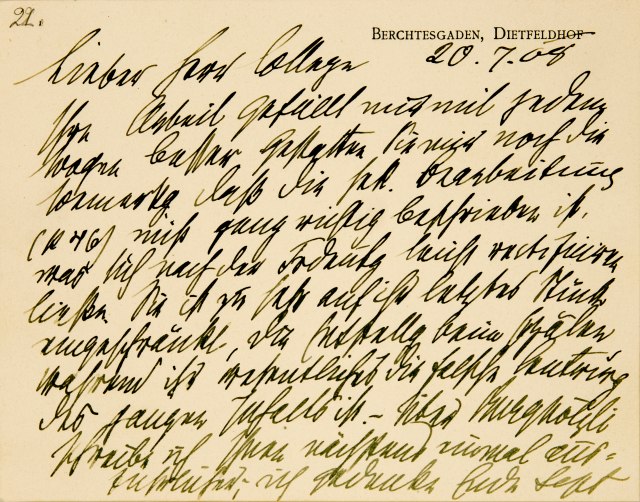 22.
BERCHTESGADEN, DIETFELDHOF
20.7.08
Lieber Herr College
Ihre Arbeit gefällt mir mit jedem
wagen besser Gestatten Sie mir noch die
Bemerkg daß die sek. Bearbeitung
(p 46) nicht ganz richtig beschrieben ist,
was sich nach der leicht rectifiziren
ließe. Sie ist zu sehr auf ihr letztes Stück
eingeschränkt, die beim
während ihr wesentliches die falsche
des ganzen Inhalts ist. – Über Burghölzli
schreibe ich Ihnen nächstens einmal aus-
führlicher, ich gedenke Ende Sept